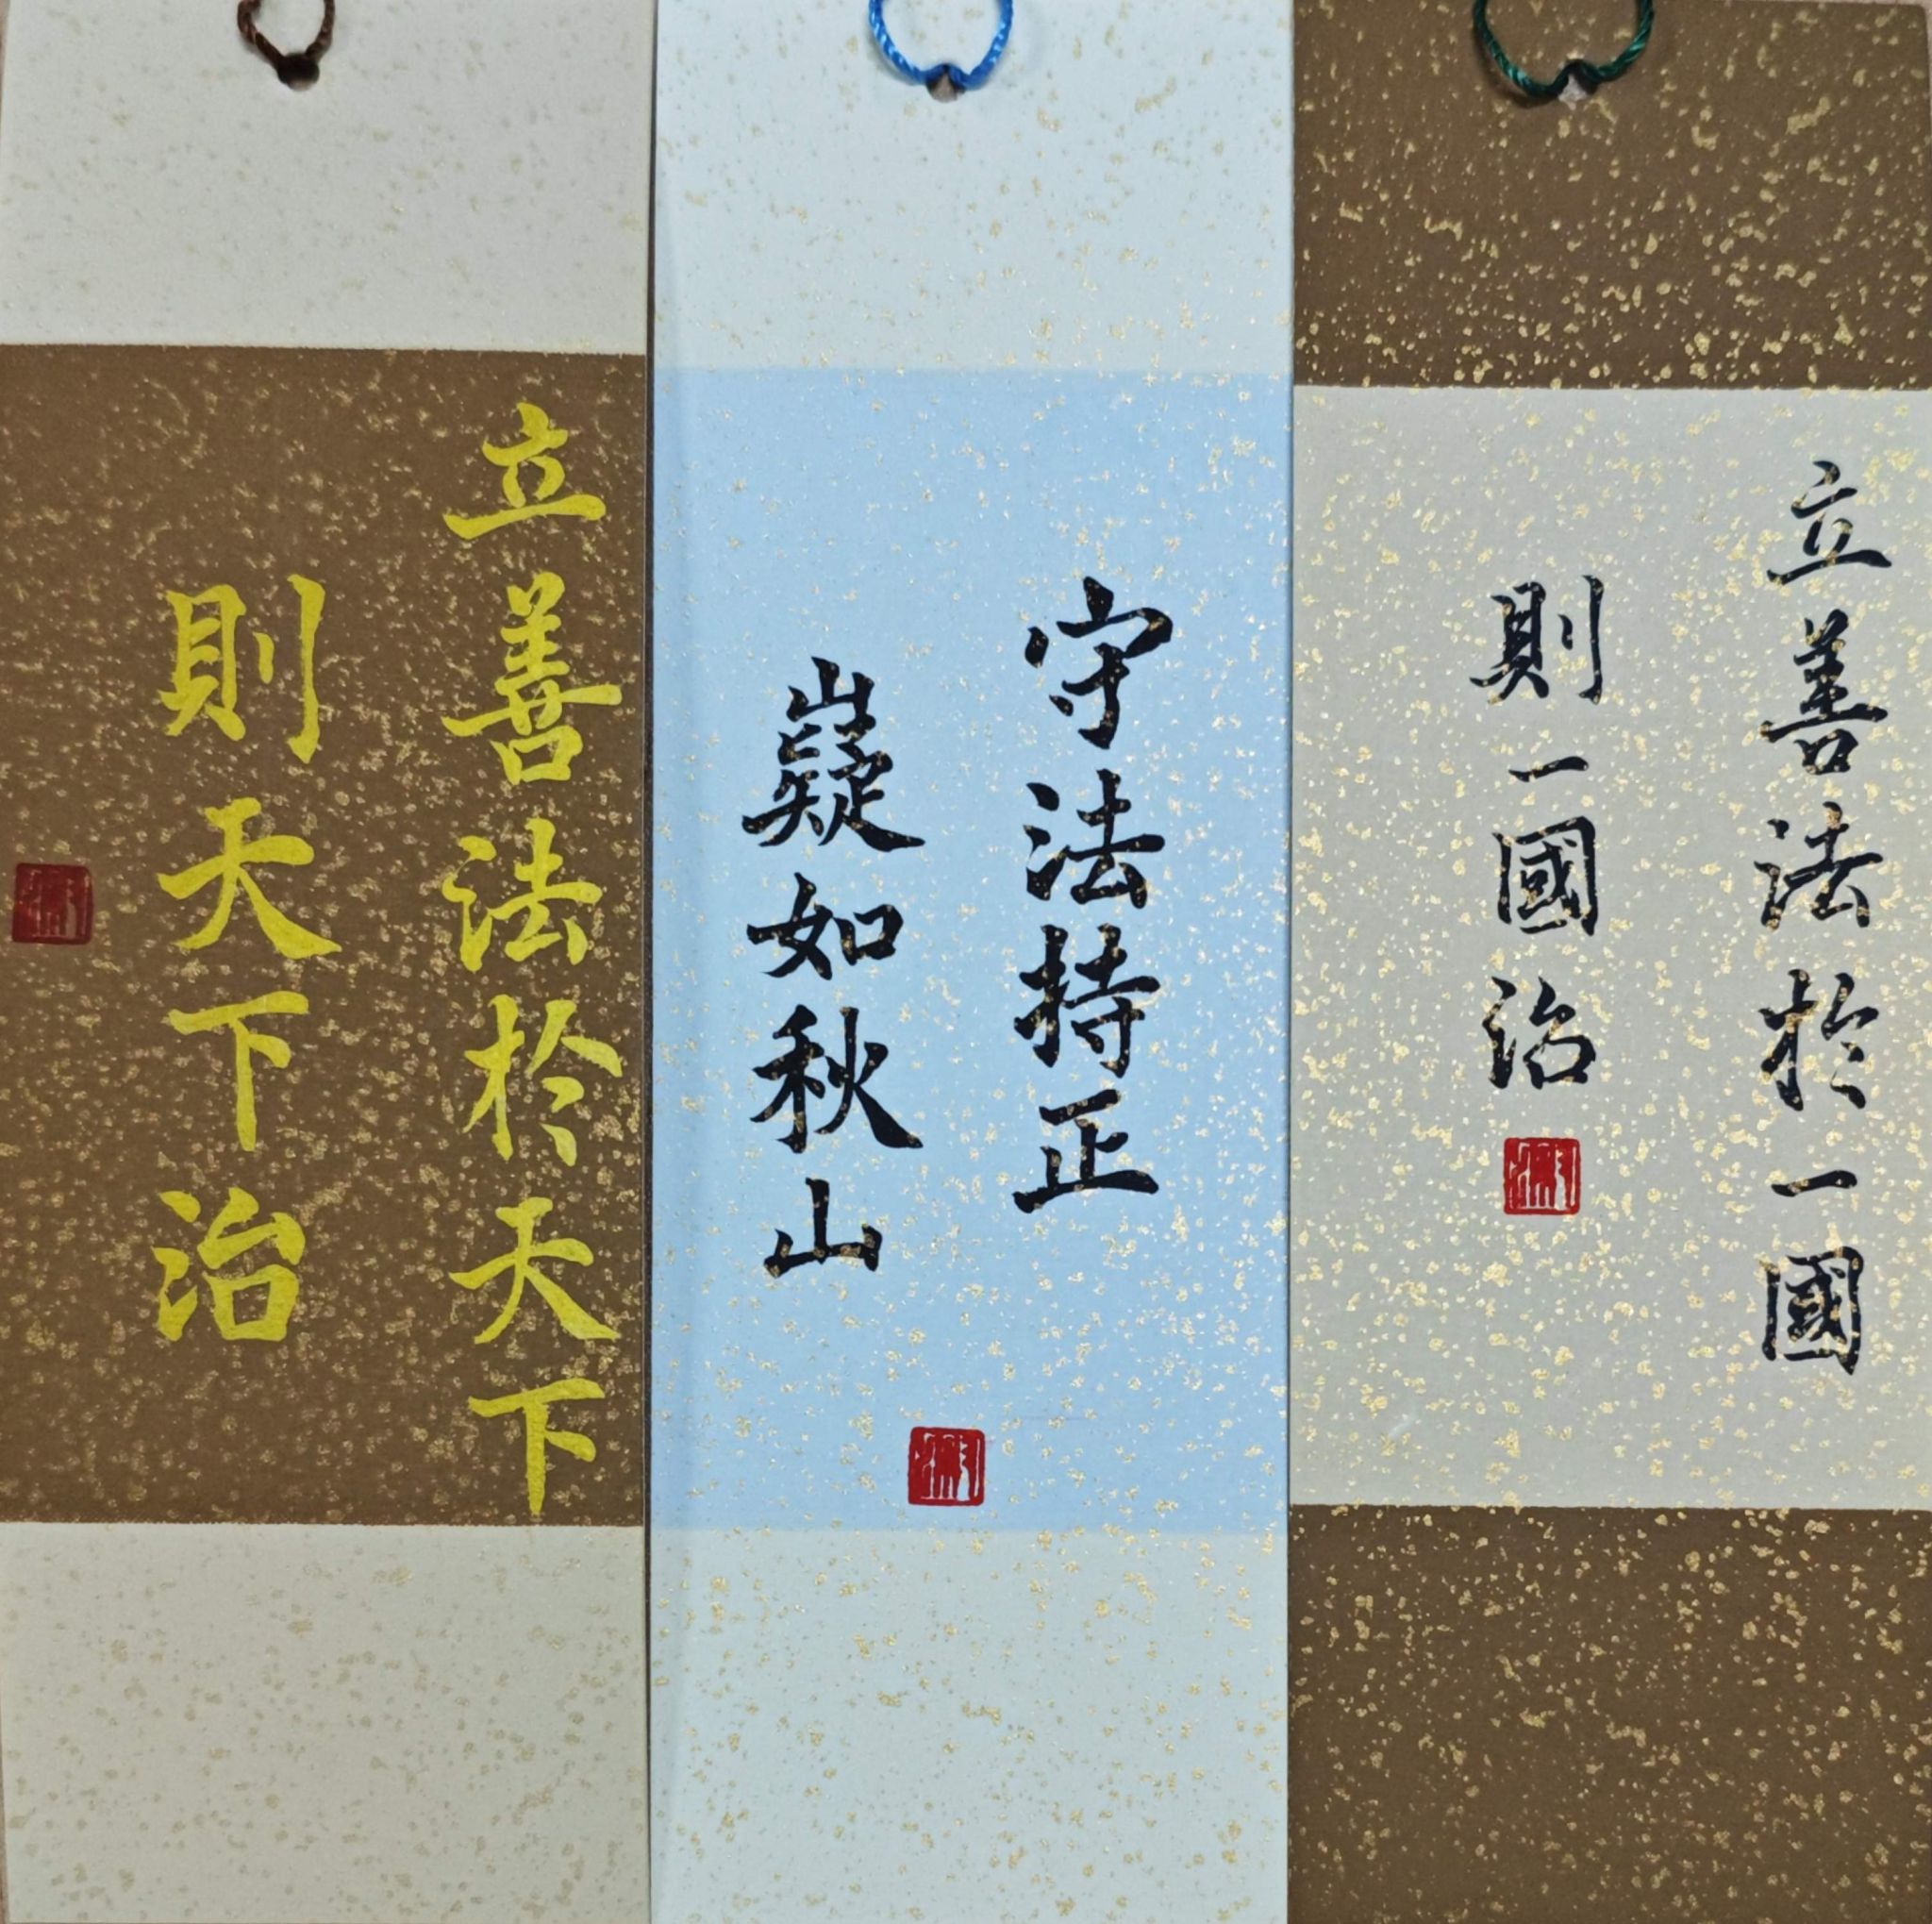 立善法於一國
則一國治
守法持正
嶷如秋山
立善法於天下
則天下治